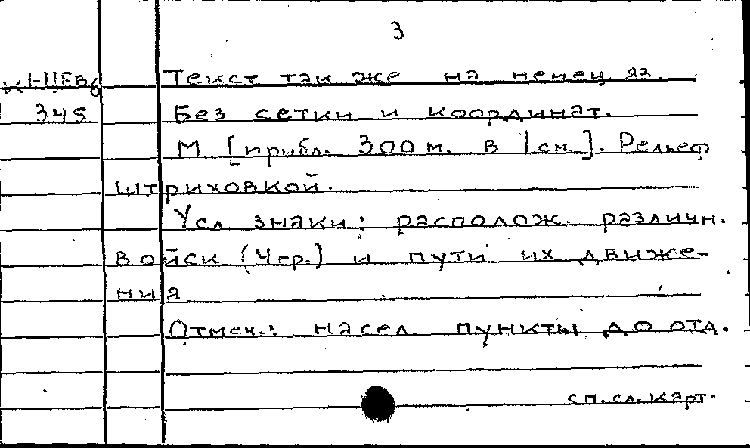 3
Текст так же на немец яз.
345 Без сетки и координат.
М [прибл. 300 м. в 1 см.]. Рельеф
штриховкой.
Усл знаки: располож. различн.
войск (Чер.) и пути их движе-
ния
Отмеч.: насел. пункты до отд.
сп. сл. карт.